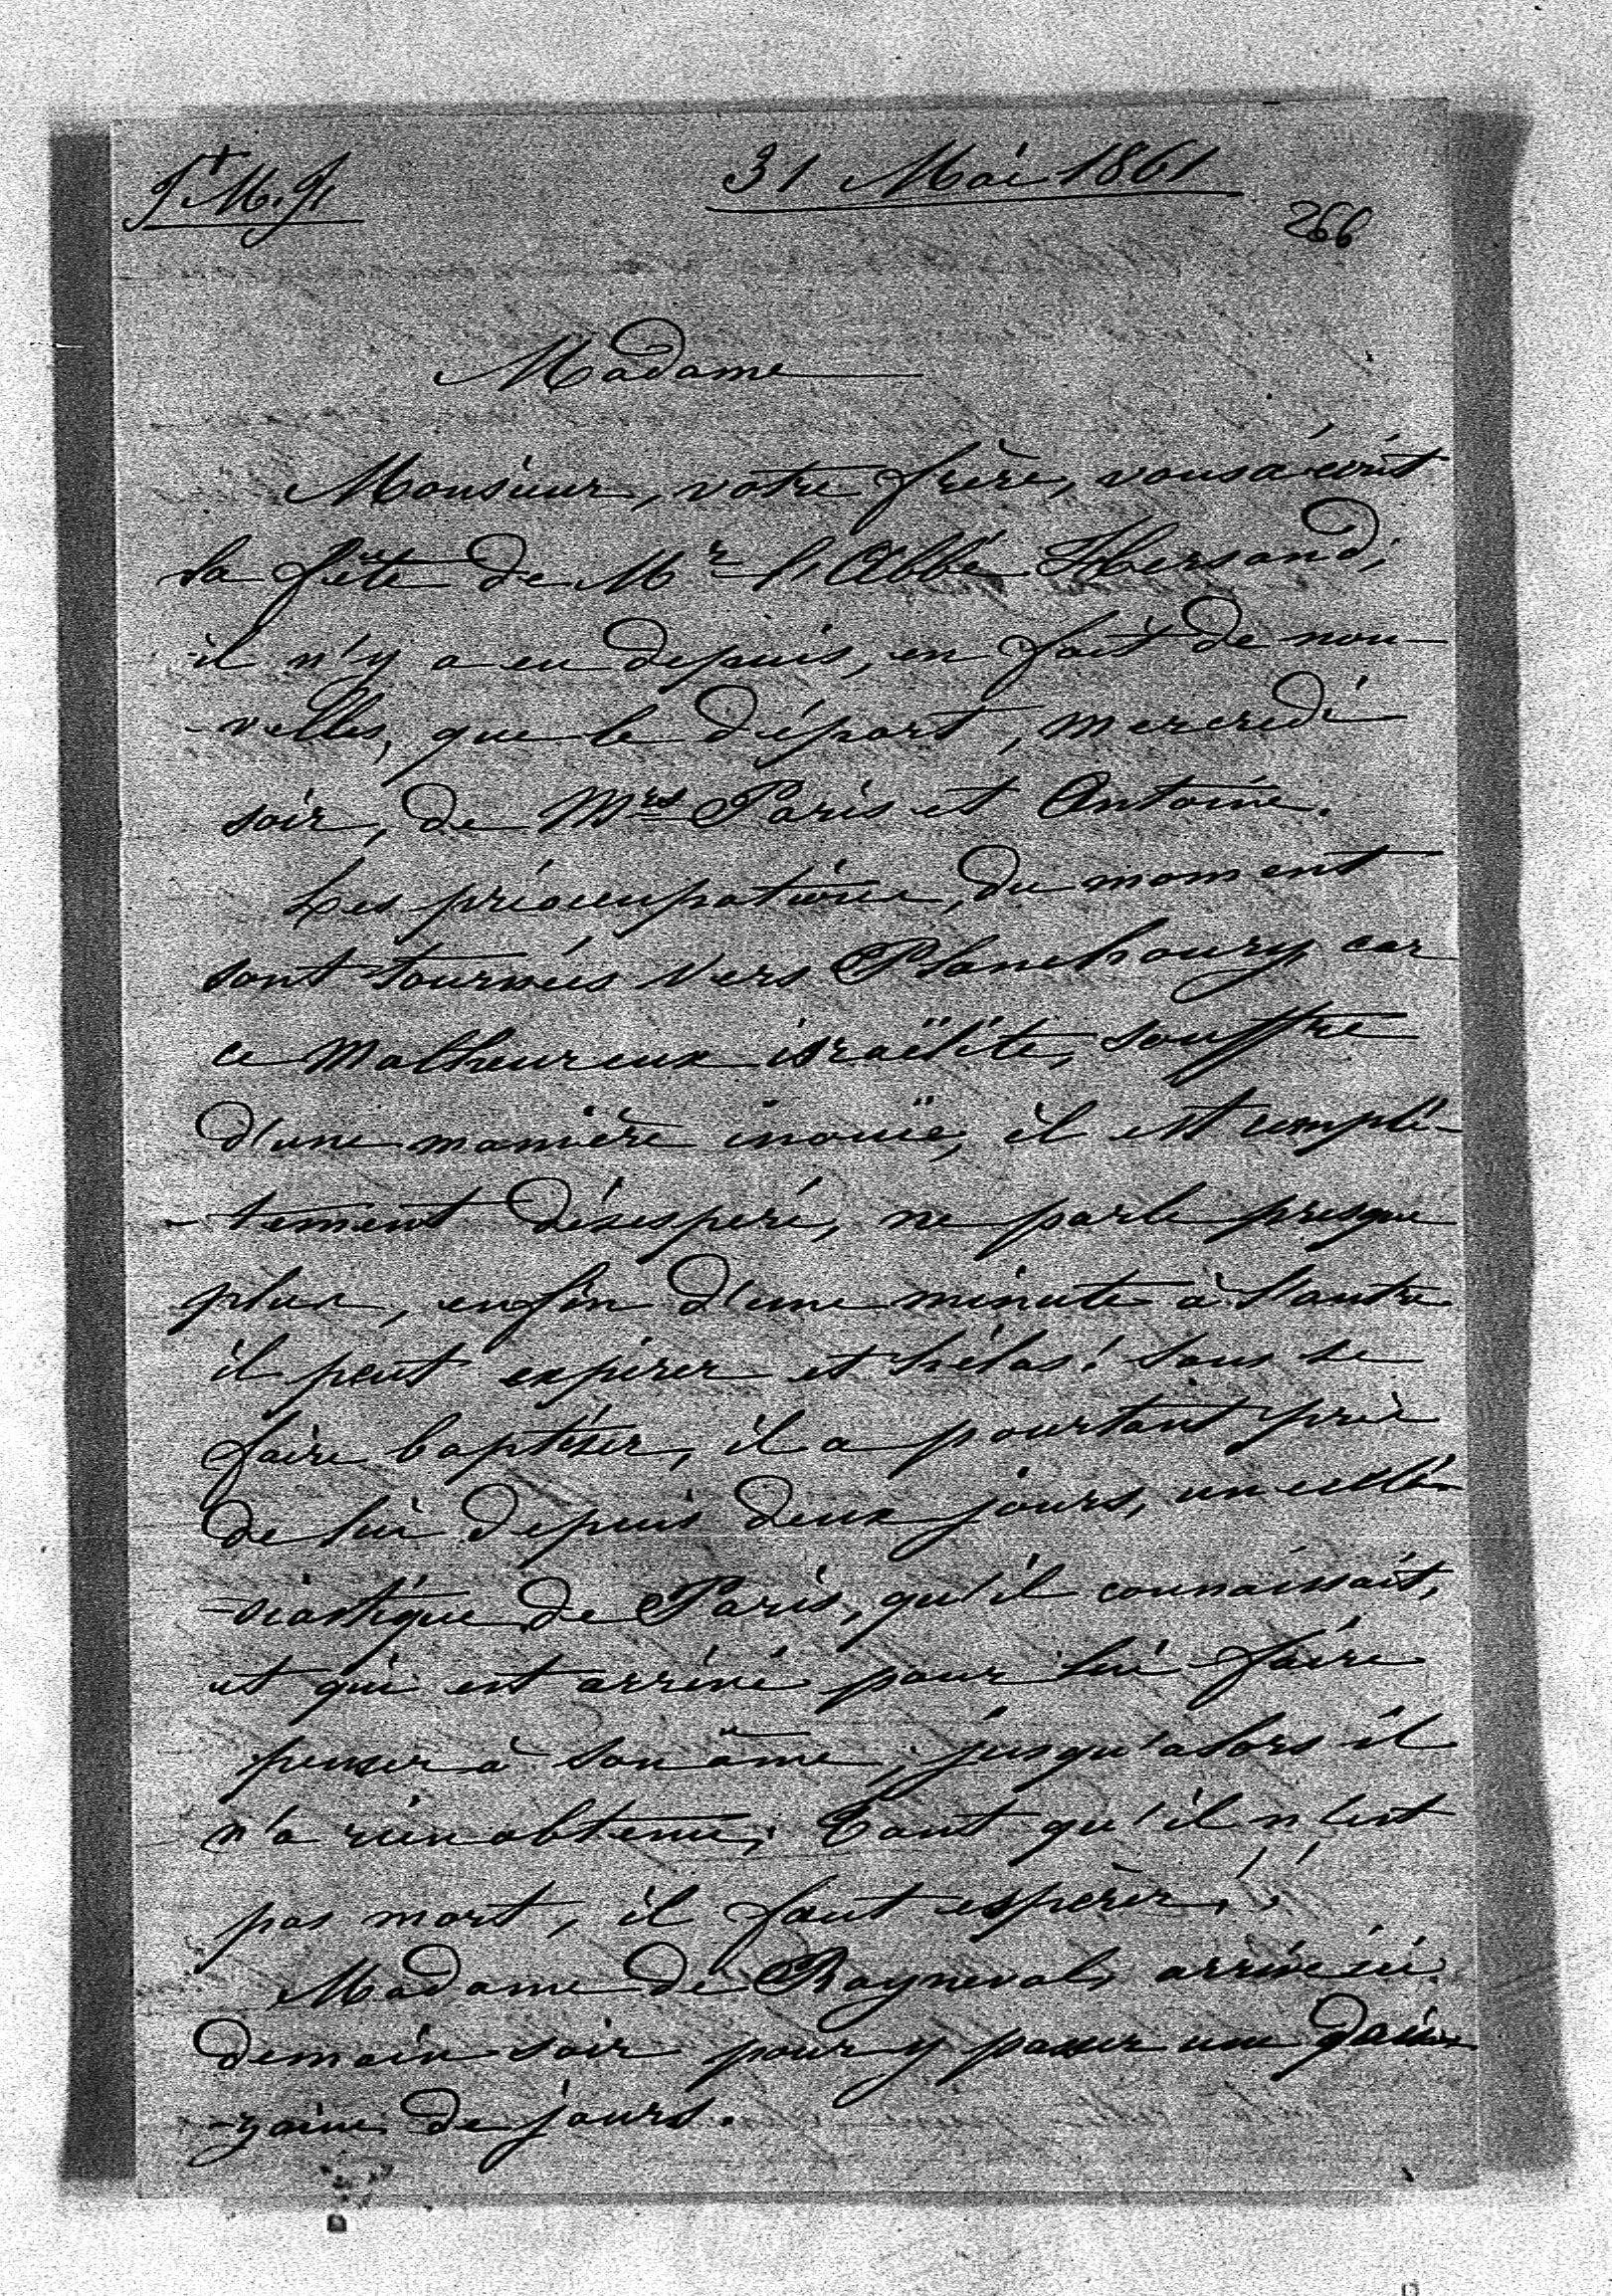 J. M. J.
31 Mai 1861
266
Madame
Monsieur, votre frère, vous a écrit
la fête de Mr l'Abbé
il n'y a eu depuis, en fait de nou-
-velles, que le départ, mercredi
soir, de Mrs Paris et Antoine.
Les préoccupations, du moment
sont tournées vers Planchoury car
ce malheureux israëlite, souffre
d'une manière inouïe, il est complè-
-tement désespéré, ne parle presque
plus, enfin d'une minute à l'autre
il peut expirer et hélas! sans se
faire baptiser, il a pourtant près
de lui depuis deux jours, un ecclé-
-siastique de Paris, qu'il connaissait,
et qui est arrivé pour lui faire
penser à son âme, jusqu'alors il
n'a rien obtenu; Tant qu'il n'est
pas mort, il faut espérer!!
Madame de Rayneval, arrive ici
demain soir pour y passer une
-zaine de jours.